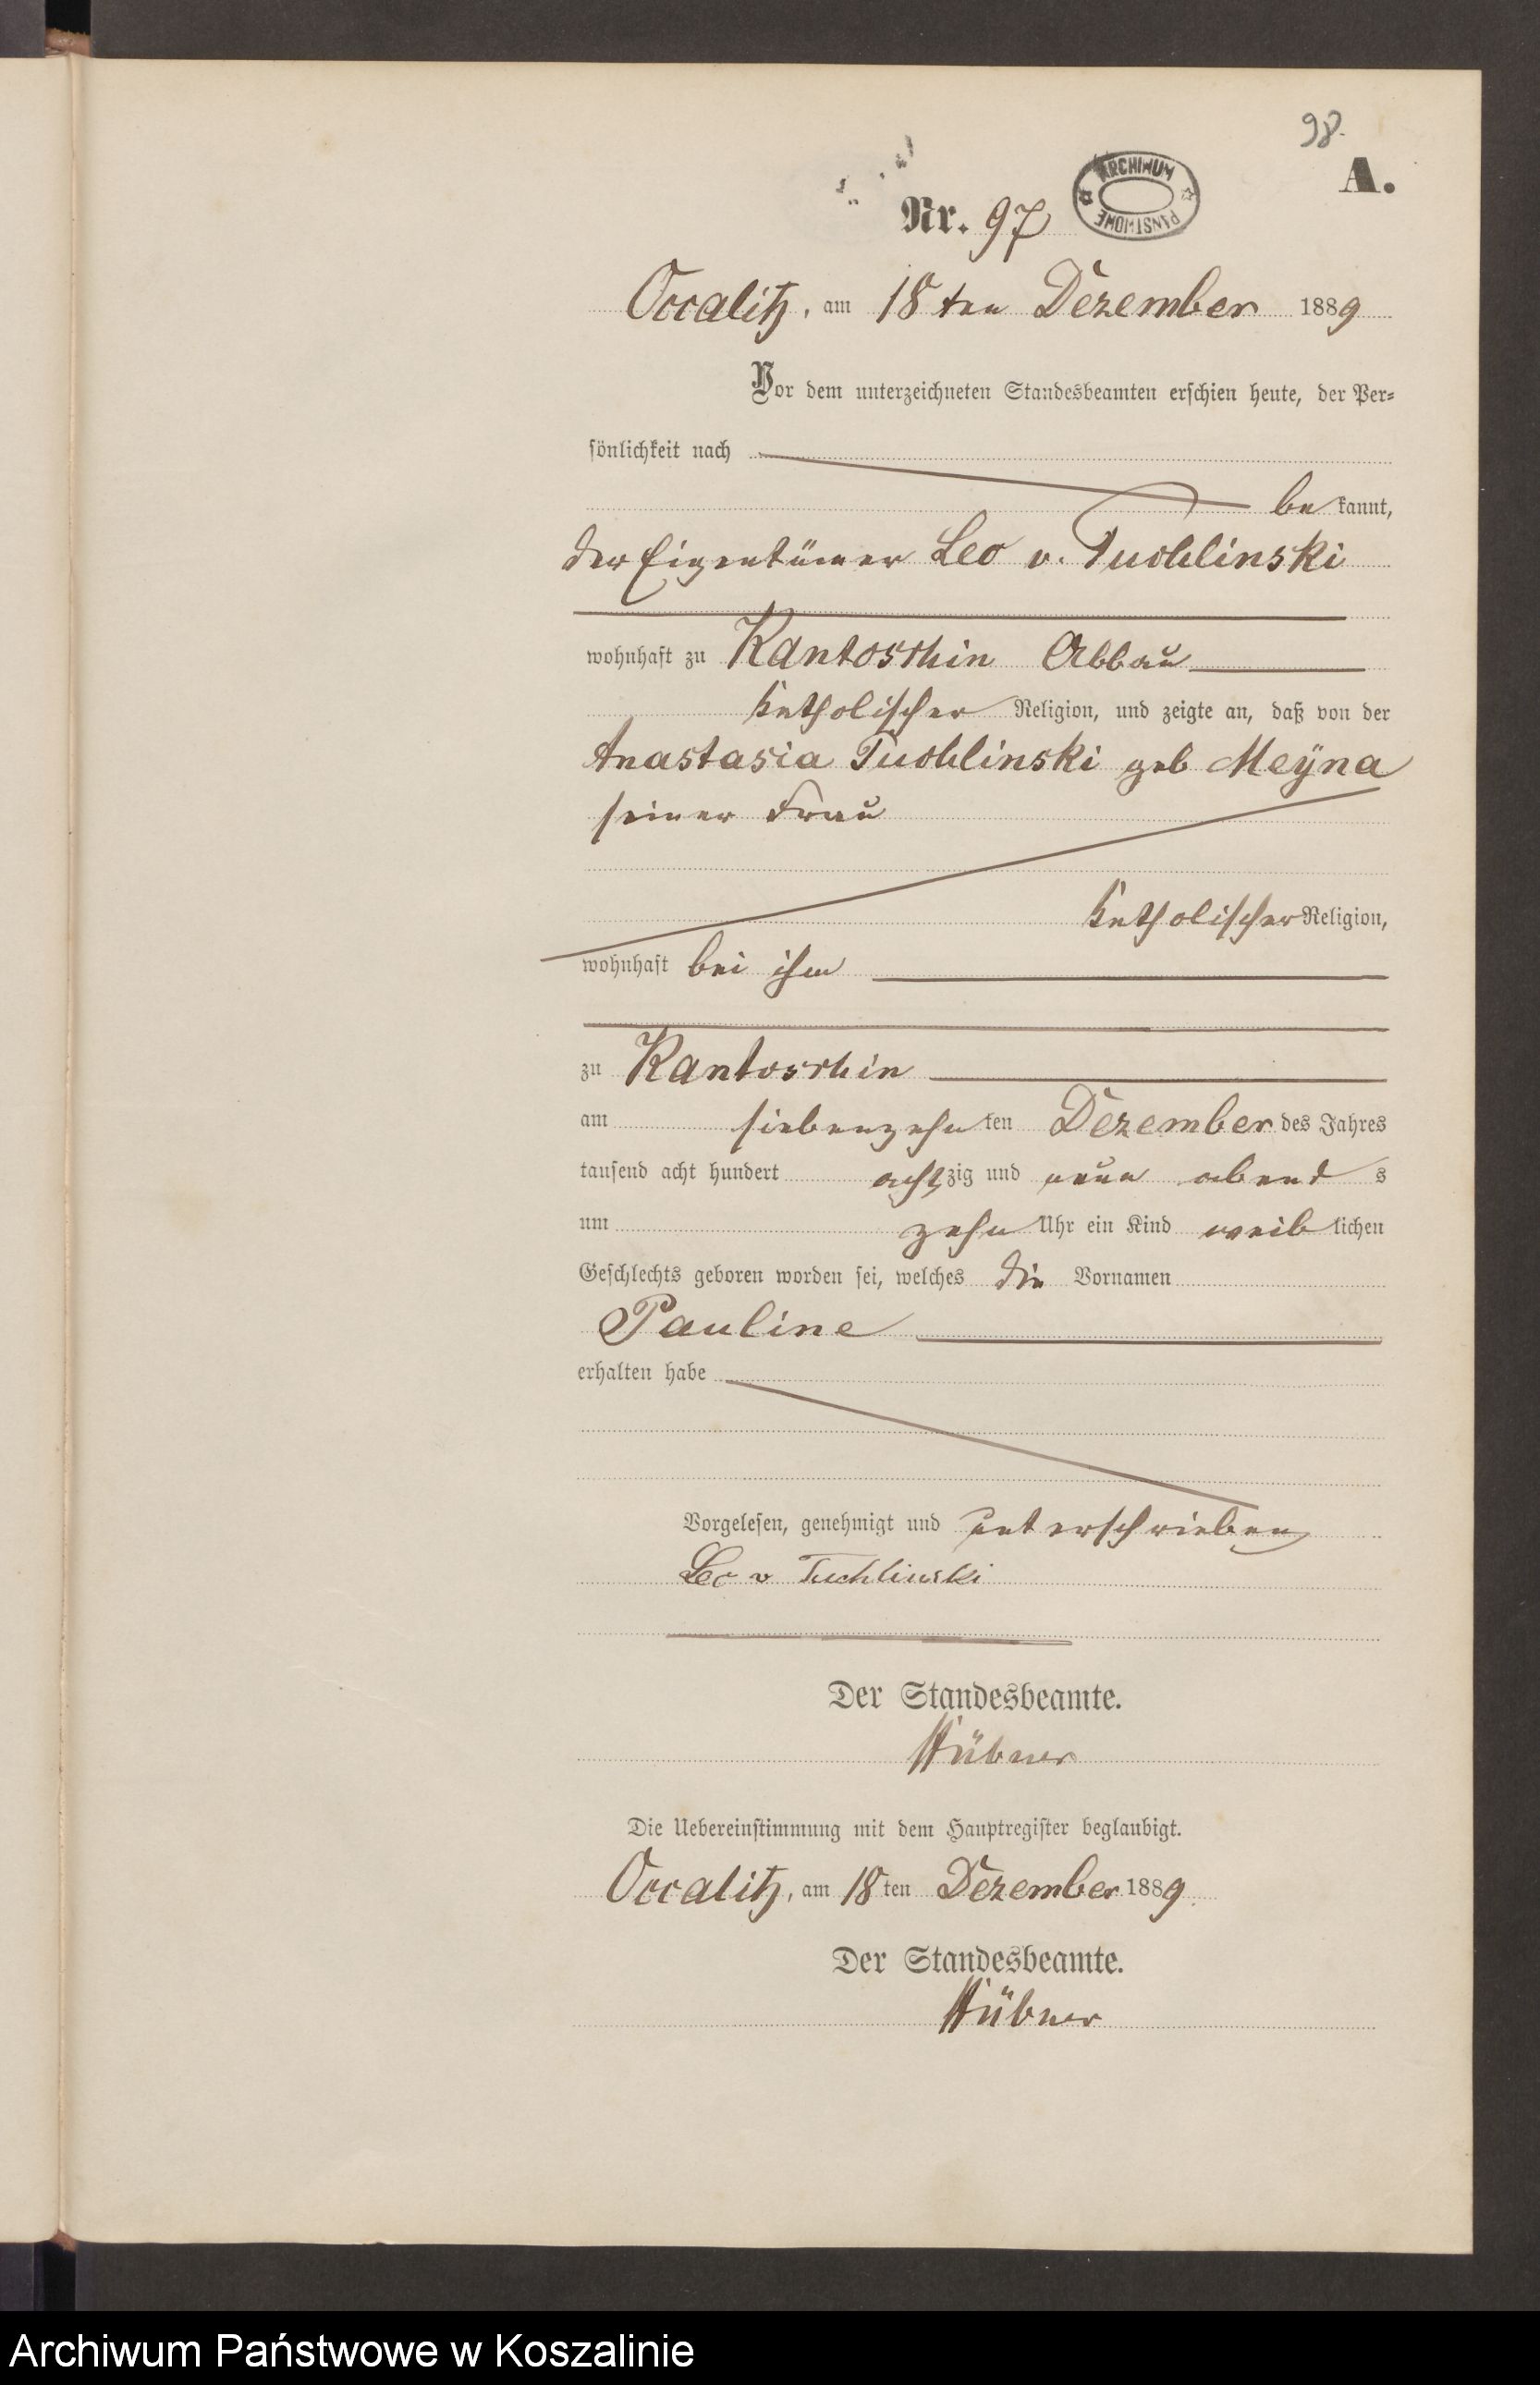 98.
A.
ARCHIWUM PAŃSTWOWE
Nr. 97
Occalitz, am 18ten Dezember 1889
Vor dem unterzeichneten Standesbeamten erschien heute, der Per-
sönlichkeit nach
bekannt,
der Eigentümer Leo v. Tuchlinski
wohnhaft zu Kantoschin Abbau
katholischer Religion, und zeigte an, daß von der
Anastasia Tuchlinski geb Meÿna
seiner Frau
katholischer Religion,
wohnhaft bei ihm
zu Kantoschin
am siebenzehnten Dezember des Jahres
tausend acht hundert achtzig und neun abends
um zehn Uhr ein Kind weiblichen
Geschlechts geboren worden sei, welches die Vornamen
Pauline
erhalten habe
Vorgelesen, genehmigt und unterschrieben
Leo v Tuchlinski
Der Standesbeamte.
Hübner
Die Uebereinstimmung mit dem Hauptregister beglaubigt.
Occalitz, am 18ten Dezember 1889.
Der Standesbeamte.
Hübner
Archiwum Państwowe w Koszalinie